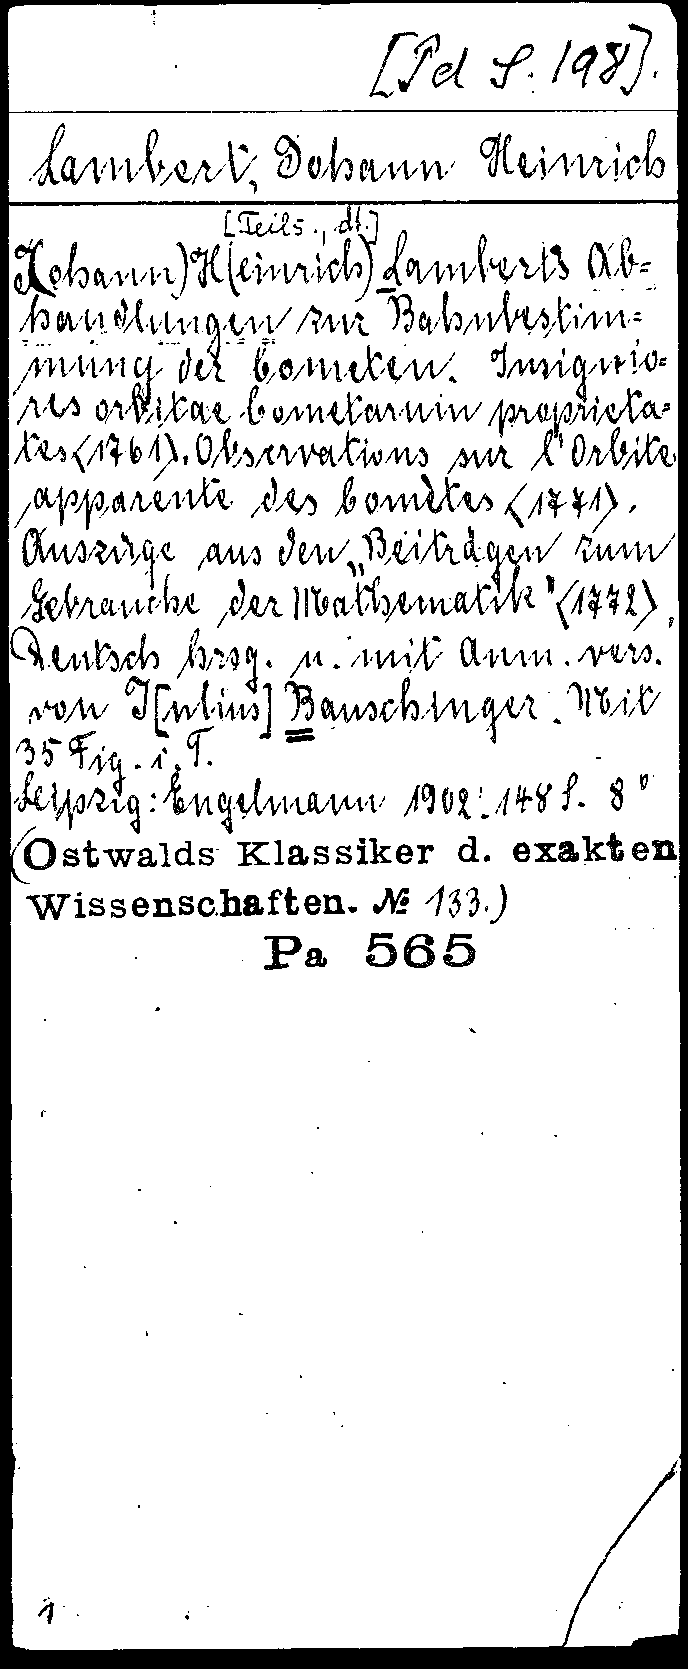 [Pd S. 198].
Lambert, Johann Heinrich
[Teils., dt.]
J(ohann) H(einrich) Lamberts Ab=
handlungen zur Bahnbestim=
mung der Cometen. Insignio=
res orbitae cometarum proprieta=
tes <1761>. Observations sur l'Orbite
apparente des Comètes <1771>.
Auszüge aus den „Beiträgen zum
Gebrauche der Mathematik" <1772>.
Deutsch hrsg. u. mit Anm. vers.
von J[ulius] Bauschinger. Mit
35 Fig. i. T.
Leipzig: Engelmann 1902. 148 S. 8°
(Ostwalds Klassiker d. exakten
Wissenschaften. № 133.)
Pa 565
1